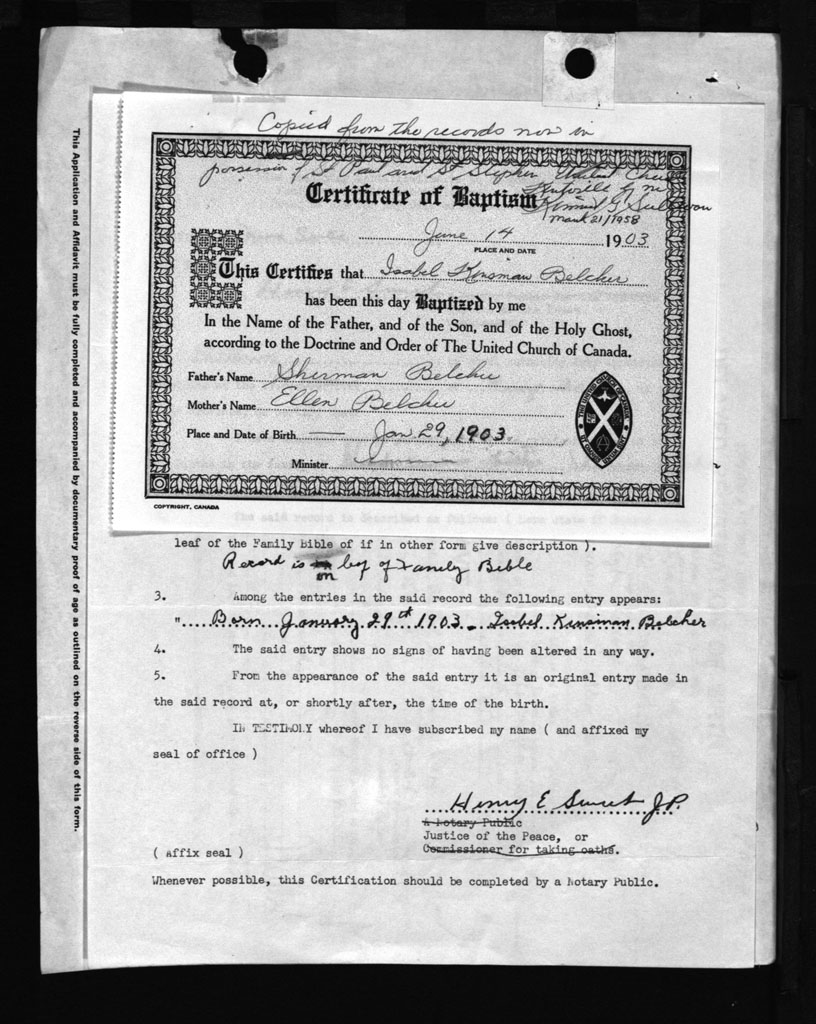 Copied from the records now in
possession of St Paul and St Stephen United Church
by me
March 21/1958
Certificate of Baptism
June 14 1903
PLACE AND DATE
This Certifies that Isabel Kinsman Belcher
has been this day Baptized by me
In the Name of the Father, and of the Son, and of the Holy Ghost,
according to the Doctrine and Order of The United Church of Canada.
Father's Name Sherman Belcher
Mother's Name Ellen Belcher
Place and Date of Birth — Jan 29, 1903.
Minister
COPYRIGHT, CANADA
The said record is described as follows ( here state if
leaf of the Family Bible of if in other form give description ).
Record is on leaf of Family Bible
3. Among the entries in the said record the following entry appears:
"..Born January 29th 1903 - Isabel Kinsman Belcher
4. The said entry shows no signs of having been altered in any way.
5. From the appearance of the said entry it is an original entry made in
the said record at, or shortly after, the time of the birth.
IN TESTIMONY whereof I have subscribed my name ( and affixed my
seal of office )
Henry E Sweet J.P.
A Notary Public
Justice of the Peace, or
Commissioner for taking oaths.
( Affix seal )
Whenever possible, this Certification should be completed by a Notary Public.
This Application and Affidavit must be fully completed and accompanied by documentary proof of age as outlined on the reverse side of this form.